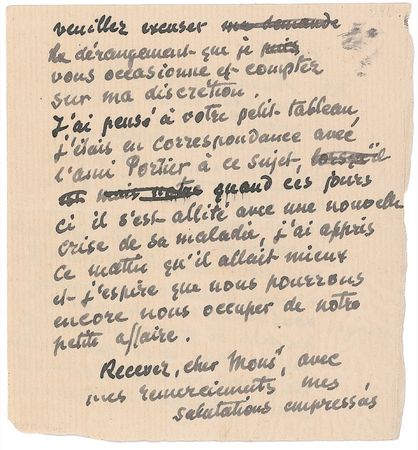 veuillez excuser ma demande
le dérangement que je puis
vous occasionne et compter
sur ma discretion.
J'ai pensé à votre petit tableau,
j'étais en correspondance avec
l'ami Portier à ce sujet, lorsqu'il
est mais notre quand ces jours
ci il s'est allité avec une nouvelle
crise de sa maladie, j'ai appris
ce matin qu'il allait mieux
et j'espère que nous pourrons
encore nous occuper de notre
petite affaire.
Recevez, cher Monsr, avec
mes remerciements mes
salutations empressés